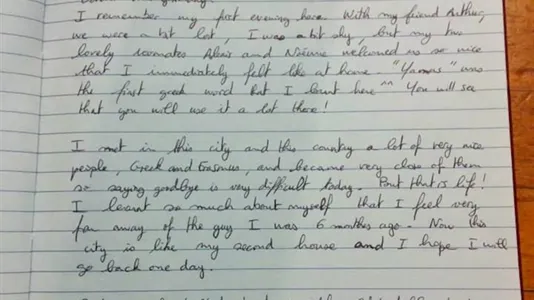 I remember my first evening here. With my friend Arthur,
we were a bit lost, I was a bit shy, but my two
lovely roomates Alexis and Noémie welcomed us so nice
that I immediately felt like at home. "Yamas" was
the first greek word that I learnt here ^^ You will see
that you will use it a lot there!
I met in this city and this country a lot of very nice
people, Greek and Erasmus, and became very close of them
so saying goodbye is very difficult today. But that is life!
I learnt so much about myself that I feel very
far away of the guy I was 6 months ago. Now this
city is like my second house and I hope I will
go back one day.